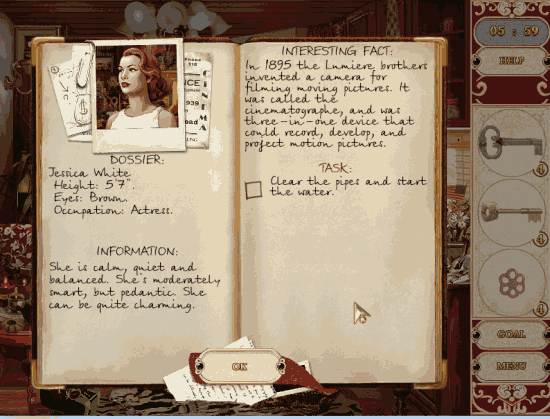 DOSSIER:
Jessica White
Height: 5'7".
Eyes: Brown.
Occupation: Actress.
INFORMATION:
She is calm, quiet and
balanced. She's moderately
smart, but pedantic. She
can be quite charming.
INTERESTING FACT:
In 1895 the Lumiere brothers
invented a camera for
filming moving pictures. It
was called the
cinematographe, and was
three-in-one device that
could record, develop, and
project motion pictures.
TASK:
Clear the pipes and start
the water.
OK
CINEMA
939
05 : 59
HELP
4
4
4
GOAL
MENU